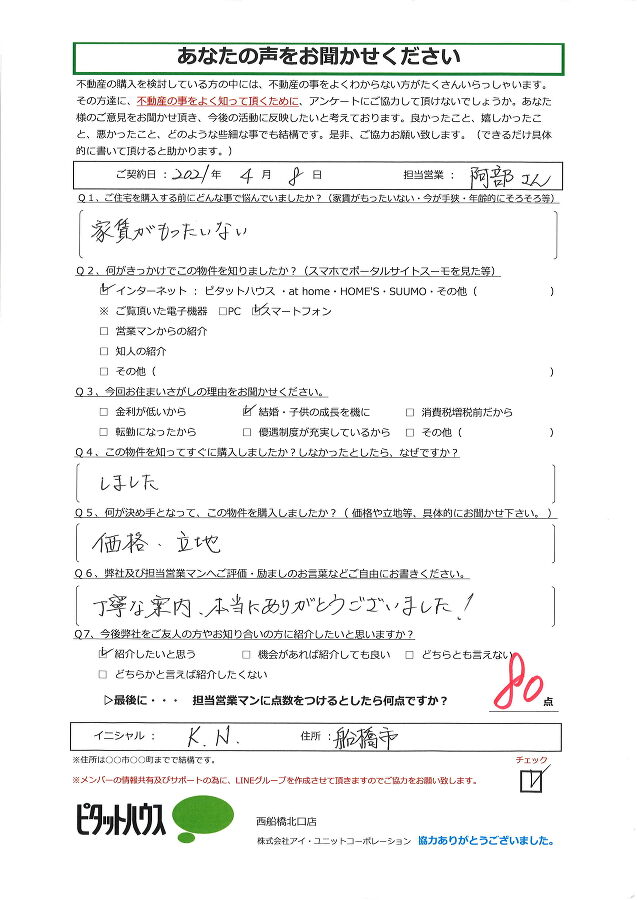 あなたの声をお聞かせください
不動産の購入を検討している方の中には、不動産の事をよくわからない方がたくさんいらっしゃいます。
その方達に、不動産の事をよく知って頂くために、アンケートにご協力して頂けないでしょうか。あなた
様のご意見をお聞かせ頂き、今後の活動に反映したいと考えております。良かったこと、嬉しかったこ
と、悪かったこと、どのような些細な事でも結構です。是非、ご協力お願い致します。（できるだけ具体
的に書いて頂けると助かります。）
ご契約日：2021年 4 月 8 日 担当営業： 阿部さん
Ｑ１、ご住宅を購入する前にどんな事で悩んでいましたか？（家賃がもったいない・今が手狭・年齢的にそろそろ等）
家賃がもったいない
Ｑ２、何がきっかけでこの物件を知りましたか？（スマホでポータルサイトスーモを見た等）
☑ インターネット： ピタットハウス ・at home・HOME'S・SUUMO・その他（ ）
※ ご覧頂いた電子機器 □PC ☑スマートフォン
□ 営業マンからの紹介
□ 知人の紹介
□ その他（ ）
Ｑ３、今回お住まいさがしの理由をお聞かせください。
□ 金利が低いから ☑ 結婚・子供の成長を機に □ 消費税増税前だから
□ 転勤になったから □ 優遇制度が充実しているから □ その他（ ）
Ｑ４、この物件を知ってすぐに購入しましたか？しなかったとしたら、なぜですか？
しました
Ｑ５、何が決め手となって、この物件を購入しましたか？（ 価格や立地等、具体的にお聞かせ下さい。）
価格、立地
Ｑ６、弊社及び担当営業マンへご評価・励ましのお言葉などご自由にお書きください。
丁寧な案内、本当にありがとうございました！
Q7、今後弊社をご友人の方やお知り合いの方に紹介したいと思いますか？
☑ 紹介したいと思う □ 機会があれば紹介しても良い □ どちらとも言えない
□ どちらかと言えば紹介したくない
▷最後に・・・ 担当営業マンに点数をつけるとしたら何点ですか？ 80 点
イニシャル： K.N. 住所： 船橋市
※住所は○○市○○町までで結構です。 チェック
※メンバーの情報共有及びサポートの為に、LINEグループを作成させて頂きますのでご協力をお願い致します。 ☑
ピタットハウス
西船橋北口店
株式会社アイ・ユニットコーポレーション 協力ありがとうございました。